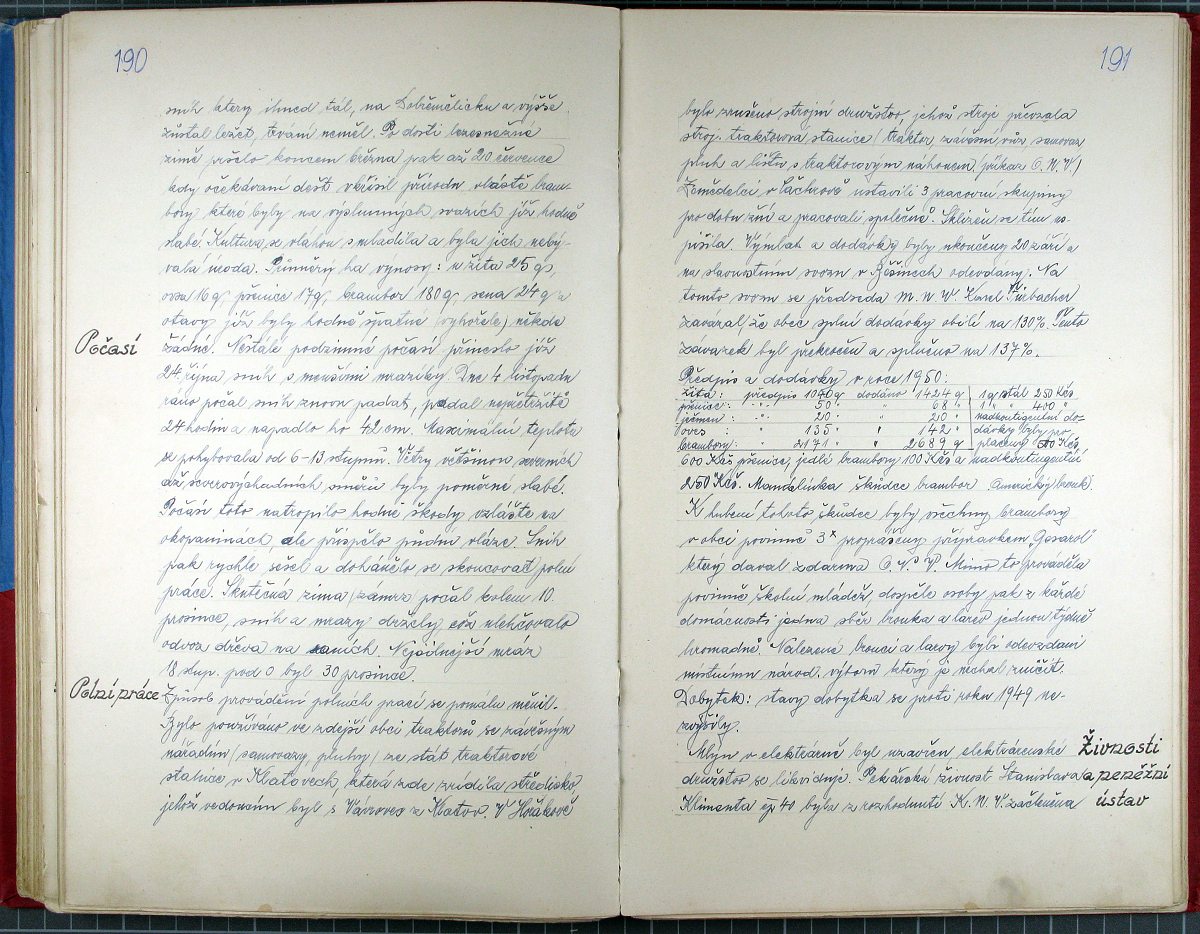 190
sníh který ihned tál, na Dobřemělicku a výšše
zůstal ležet, trvání neměl. Po dosti bezesněžné
zimě pršelo koncem března pak až 20 července
kdy očekávaní dešť vzkřísil přírodu zláště bram-
bory které byly na výslunných svazích již hodně
slabé. Kultura se vláhou smladila a byla jich neby-
valá úroda. Průměrný ha výnosy: u žita 25 q,
ovsa 16 q, pšenice 17 q, brambor 180 q, sena 24 q a
otavy již byly hodně špatné (vyhořelé) někde
Počasí
žádné. Nestálé podzimné počasí přineslo již
24. října sníh s menšími mrazíky. Dne 4 listopadu
ráno počal sníh znovu padat, padal nepřetržitě
24 hodin a napadlo ho 42 cm. Maximální teplota
se pohybovala od 6-13 stupňů. Větry většinou severních
až severovýchodních směrů byly poměrně slabé.
Počasí toto natropilo hodně škody vzláště na
okopaninách, ale přispělo půdní vláze. Sníh
pak rychle sešel a dohánělo se skoncovat polní
práce. Skutečná zima (zámrz počal kolem 10.
prosince, sníh a mrazy držely což ulehčovalo
odvoz dřeva na saních. Nejsilnejší mráz
18 stup. pod 0 byl 30 prosince.
Polní práce
Způsob provádění polních prací se pomálu měnil.
Bylo používáno ve zdejší obci traktorů se závěsným
nářadím (samovazy, pluhy) ze stát traktorové
stanice v Klatovech, která zde zřídila středisko,
jehož vedoucím byl s Vávrovec z Klatov. V Hořákově
191
bylo zrušeno strojní družstvo, jehož stroje převzala
stroj. traktorová stanice (traktor, závěsní vůz samovaz
pluh a lištu s traktorovym náhonem (příkaz O.N.V.)
Zemědelci v ustavili 3 pracovní skupiny
pro dobu žní a pracovali společně. Sklizeň se tím us-
píšila. Výmlat a dodávky byly ukončeny 20 září a
na slavnostním svozu v Běšinech odevdány. Na
tomto svozu se předseda M.N.V Karel Turbacher
zavázal, že obec splní dodávky obilí na 130%. Tento
závazek byl překročen a splněno na 137%.
Předpis a dodávky v roce 1950:
žita: předpis 1040 q dodáno 1424 q 1 q stál 250 Kčs
pšenice: " " 50 " " 68 " 1 " " 400 "
ječmen: " 20 " " 20 " nadkontigentní do-
oves " 135 " " 142 " dávky byly pro
brambory: " 2171 " " 2689 q placeny 500 Kčs
600 Kčs pšenice, jedlé brambory 100 Kčs a nadkontingentní
250 Kčs. Mandelinka škůdce brambor (americký brouk)
K hubení tohoto škůdce byly všechny brambory
v obci povinně 3x proprášeny přípravkem "Gesarol"
který daval zdarma O.N.V. Mimo to prováděla
povinně školní mládež, dospělé osoby pak z každé
domácnosti jedna sběr brouka a larev jednou týdně
hromadně. Nalezené brouci a larvy byli odevzdaní
místnímu národ. výboru který je nechal zničit.
Dobytek: stavy dobytka se proti roku 1949 ne-
zvýšily.
Živnosti
a peněžní
ústav
Mlýn v elektrárně byl uzavřen elektrárenské
družstvo se likviduje. Pekařská živnost Stanislava
Klimenta čp 40 byla z rozhodnutí K.N.V. začleněna